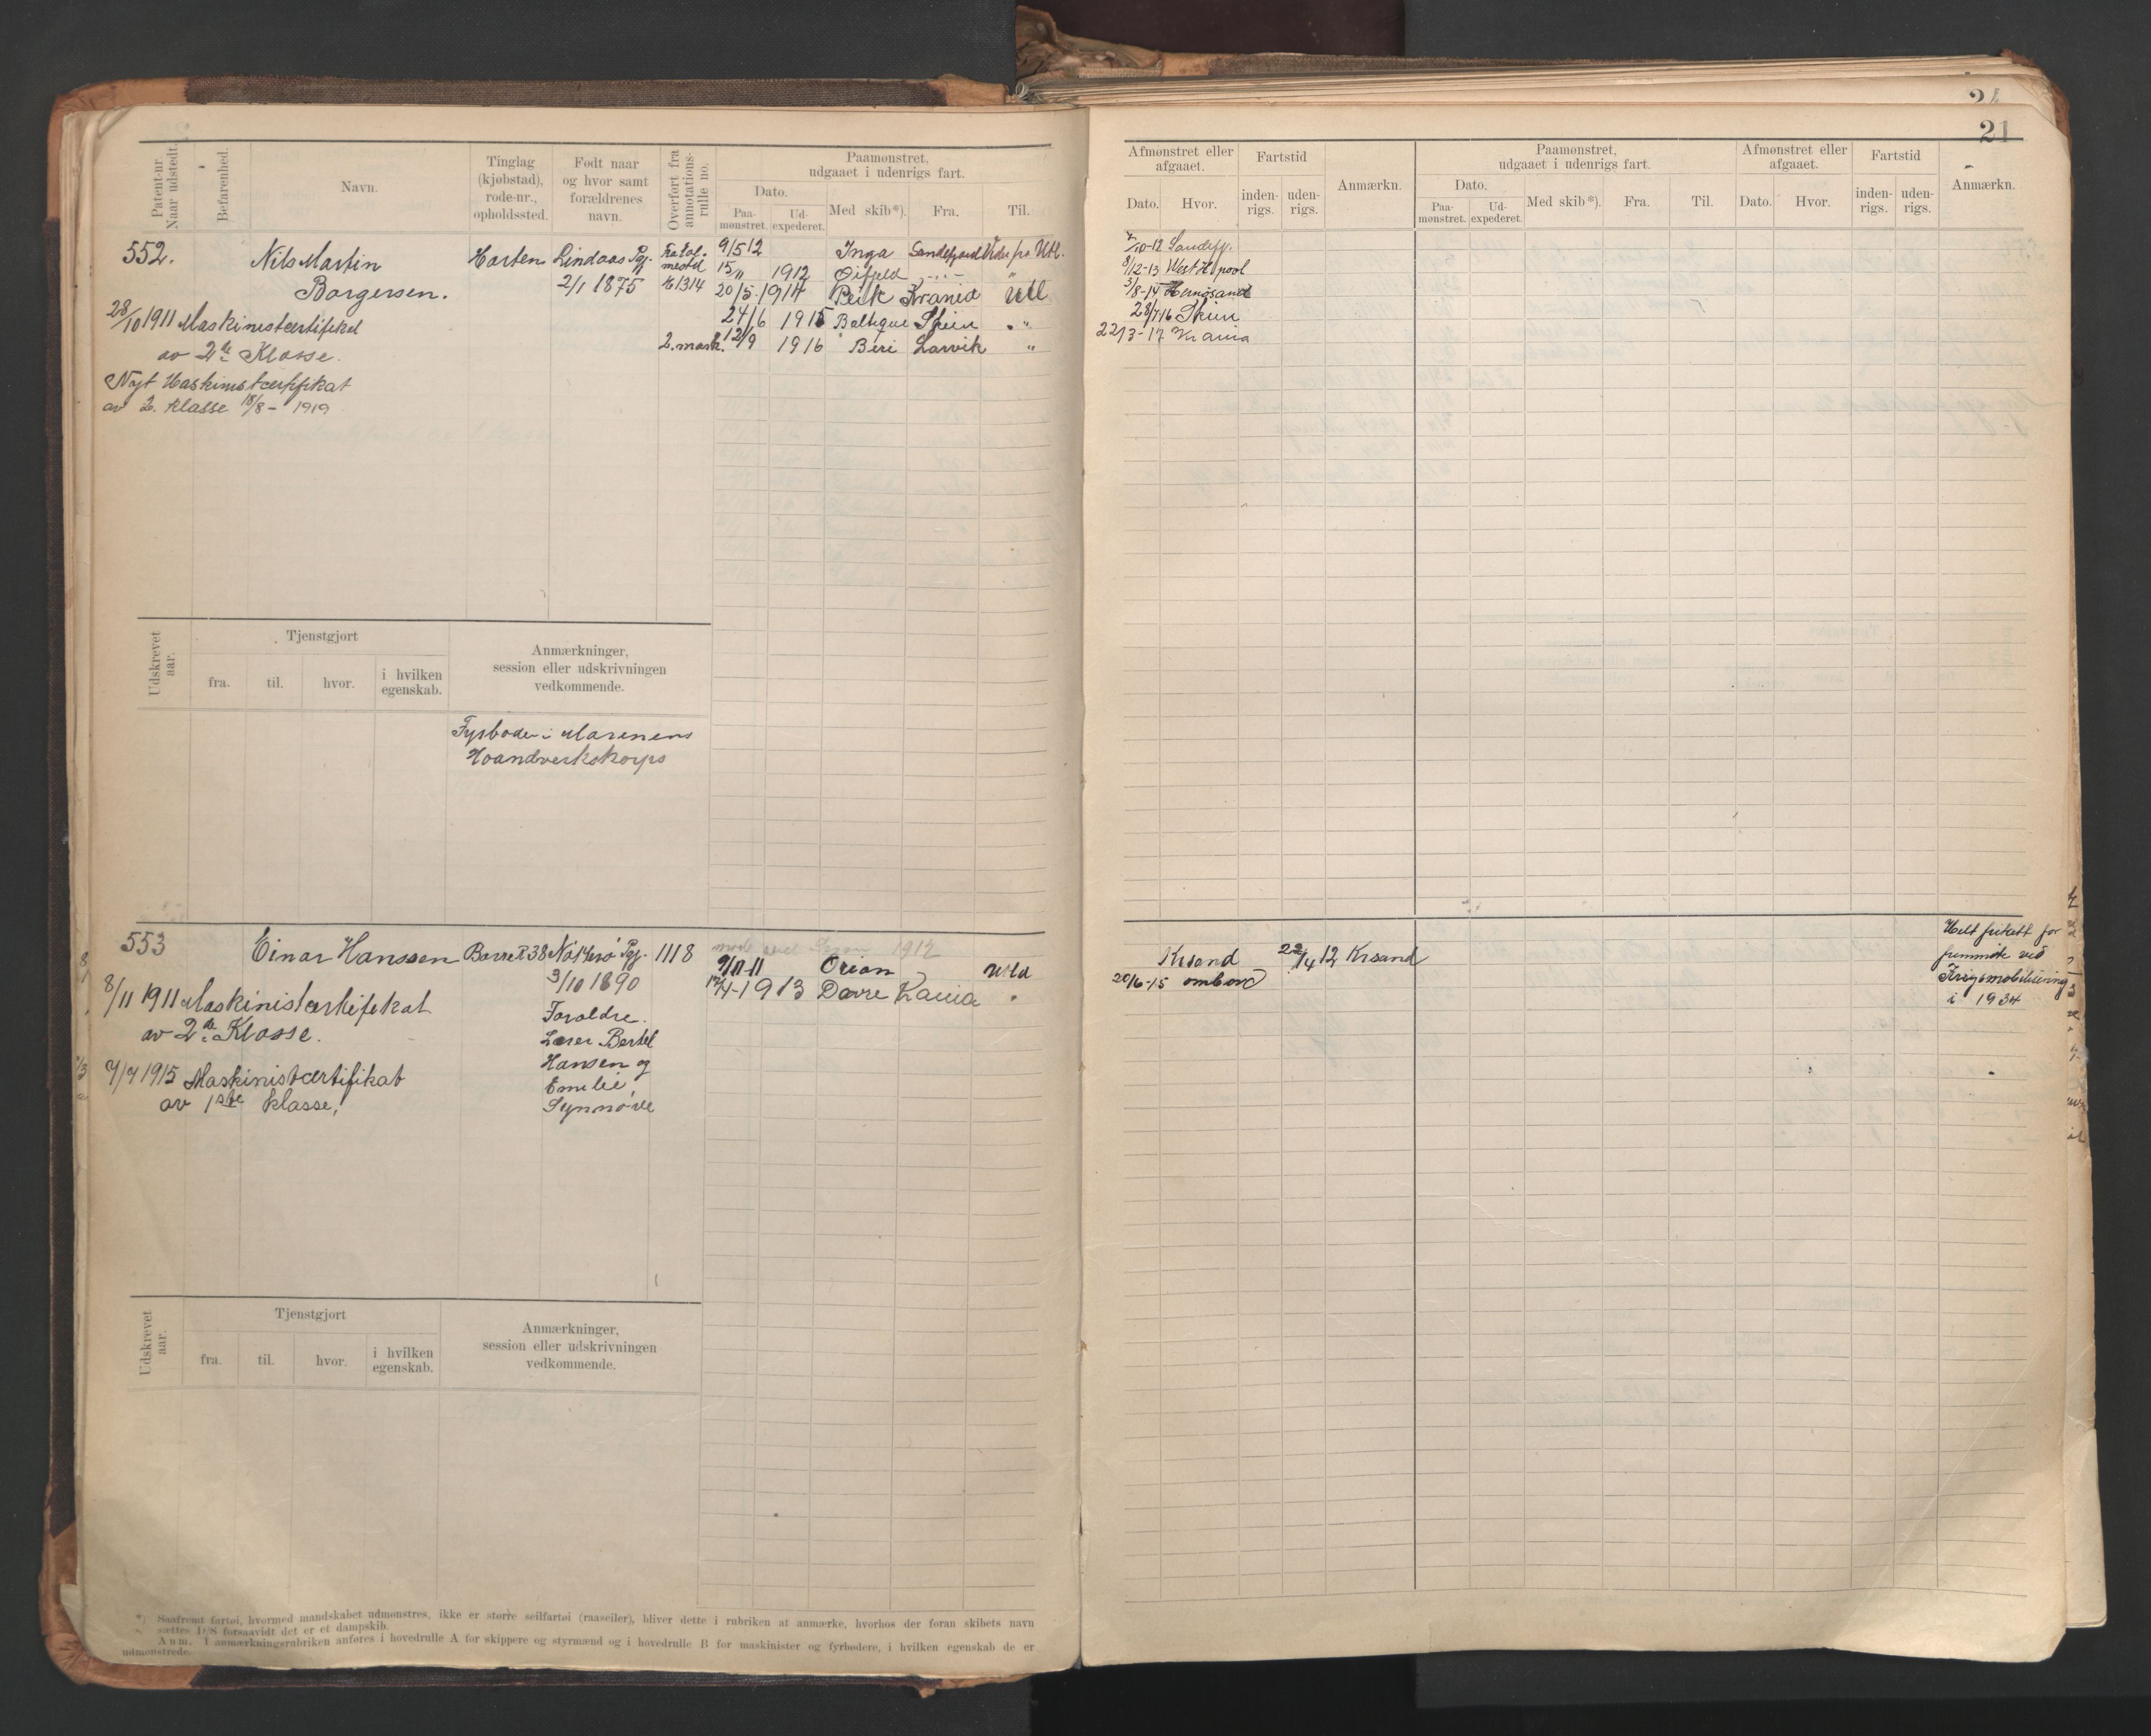 21
Patent-nr.
Naar udstedt.
Befarenhed.
Navn.
Tinglag
(kjøbstad),
rode-nr.,
opholdssted.
Født naar
og hvor samt
forældrenes
navn.
Overført fra
annotations-
rulle no.
Paamønstret,
udgaaet i udenrigs fart.
Dato.
Paa-
mønstret.
Ud-
expederet.
Med skib*).
Fra.
Til.
Afmønstret eller
afgaaet.
Dato.
Hvor.
Fartstid
inden-
rigs.
uden-
rigs.
Anmærkn.
Paamønstret,
udgaaet i udenrigs fart.
Dato.
Paa-
mønstret.
Ud-
expederet.
Med skib*).
Fra.
Til.
Afmønstret eller
afgaaet.
Dato.
Hvor.
Fartstid
inden-
rigs.
uden-
rigs.
Anmærkn.
552.
Nils Martin
Borgersen.
Horten
Lindaas Pgj.
2/1 1875
1314
28/10 1911 Maskinistcertifikat
av 2de Klasse.
Nyt Maskinistcertifikat
av 2. klasse 18/8 - 1919
9/5 12 Inga Sandefjord
15/11 1912 Øifjeld
20/5 1914 Beik Krania Utl
24/6 1915 Baltique Skien "
2. mask. 12/9 1916 Beri Larvik "
/10-12 Sandefj.
8/12-13 West H.pool
3/8-14 Hernøsand
28/7 16 Skien
22/3-17 Krania
Udskrevet
aar.
Tjenstgjort
fra.
til.
hvor.
i hvilken
egenskab.
Anmærkninger,
session eller udskrivningen
vedkommende.
Fyrbøder i Marinens
Haandverkskorps
553
Einar Hanssen
Borre R 38
Nøtterø Pgj.
3/10 1890
1118
1912
8/11 1911 Maskinistcertifikat
av 2de Klasse.
7/7 1915 Maskinistcertifikat
av 1ste klasse,
Foræld­re.
Lærer Bertel
Hansen og
Emelie
Synnøve
9/11-11 Orion Utld
/4-1913 Dovre Kania "
Krsand 22/4 12 Krsand
20/6-15 ombord
Helt fritatt for
fremmøte ved
Krigsmobilisering
i 1934
Udskrevet
aar.
Tjenstgjort
fra.
til.
hvor.
i hvilken
egenskab.
Anmærkninger,
session eller udskrivningen
vedkommende.
*) Saafremt fartøi, hvormed mandskabet udmønstres, ikke er større seilfartøi (raaseiler), bliver dette i rubriken at anmærke, hvorhos der foran skibets navn
sættes D/S forsaavidt det er et dampskib.
Anm. I anmærkningsrubriken anføres i hovedrulle A for skippere og styrmænd og i hovedrulle B for maskinister og fyrbødere, i hvilken egenskab de er
udmønstrede.